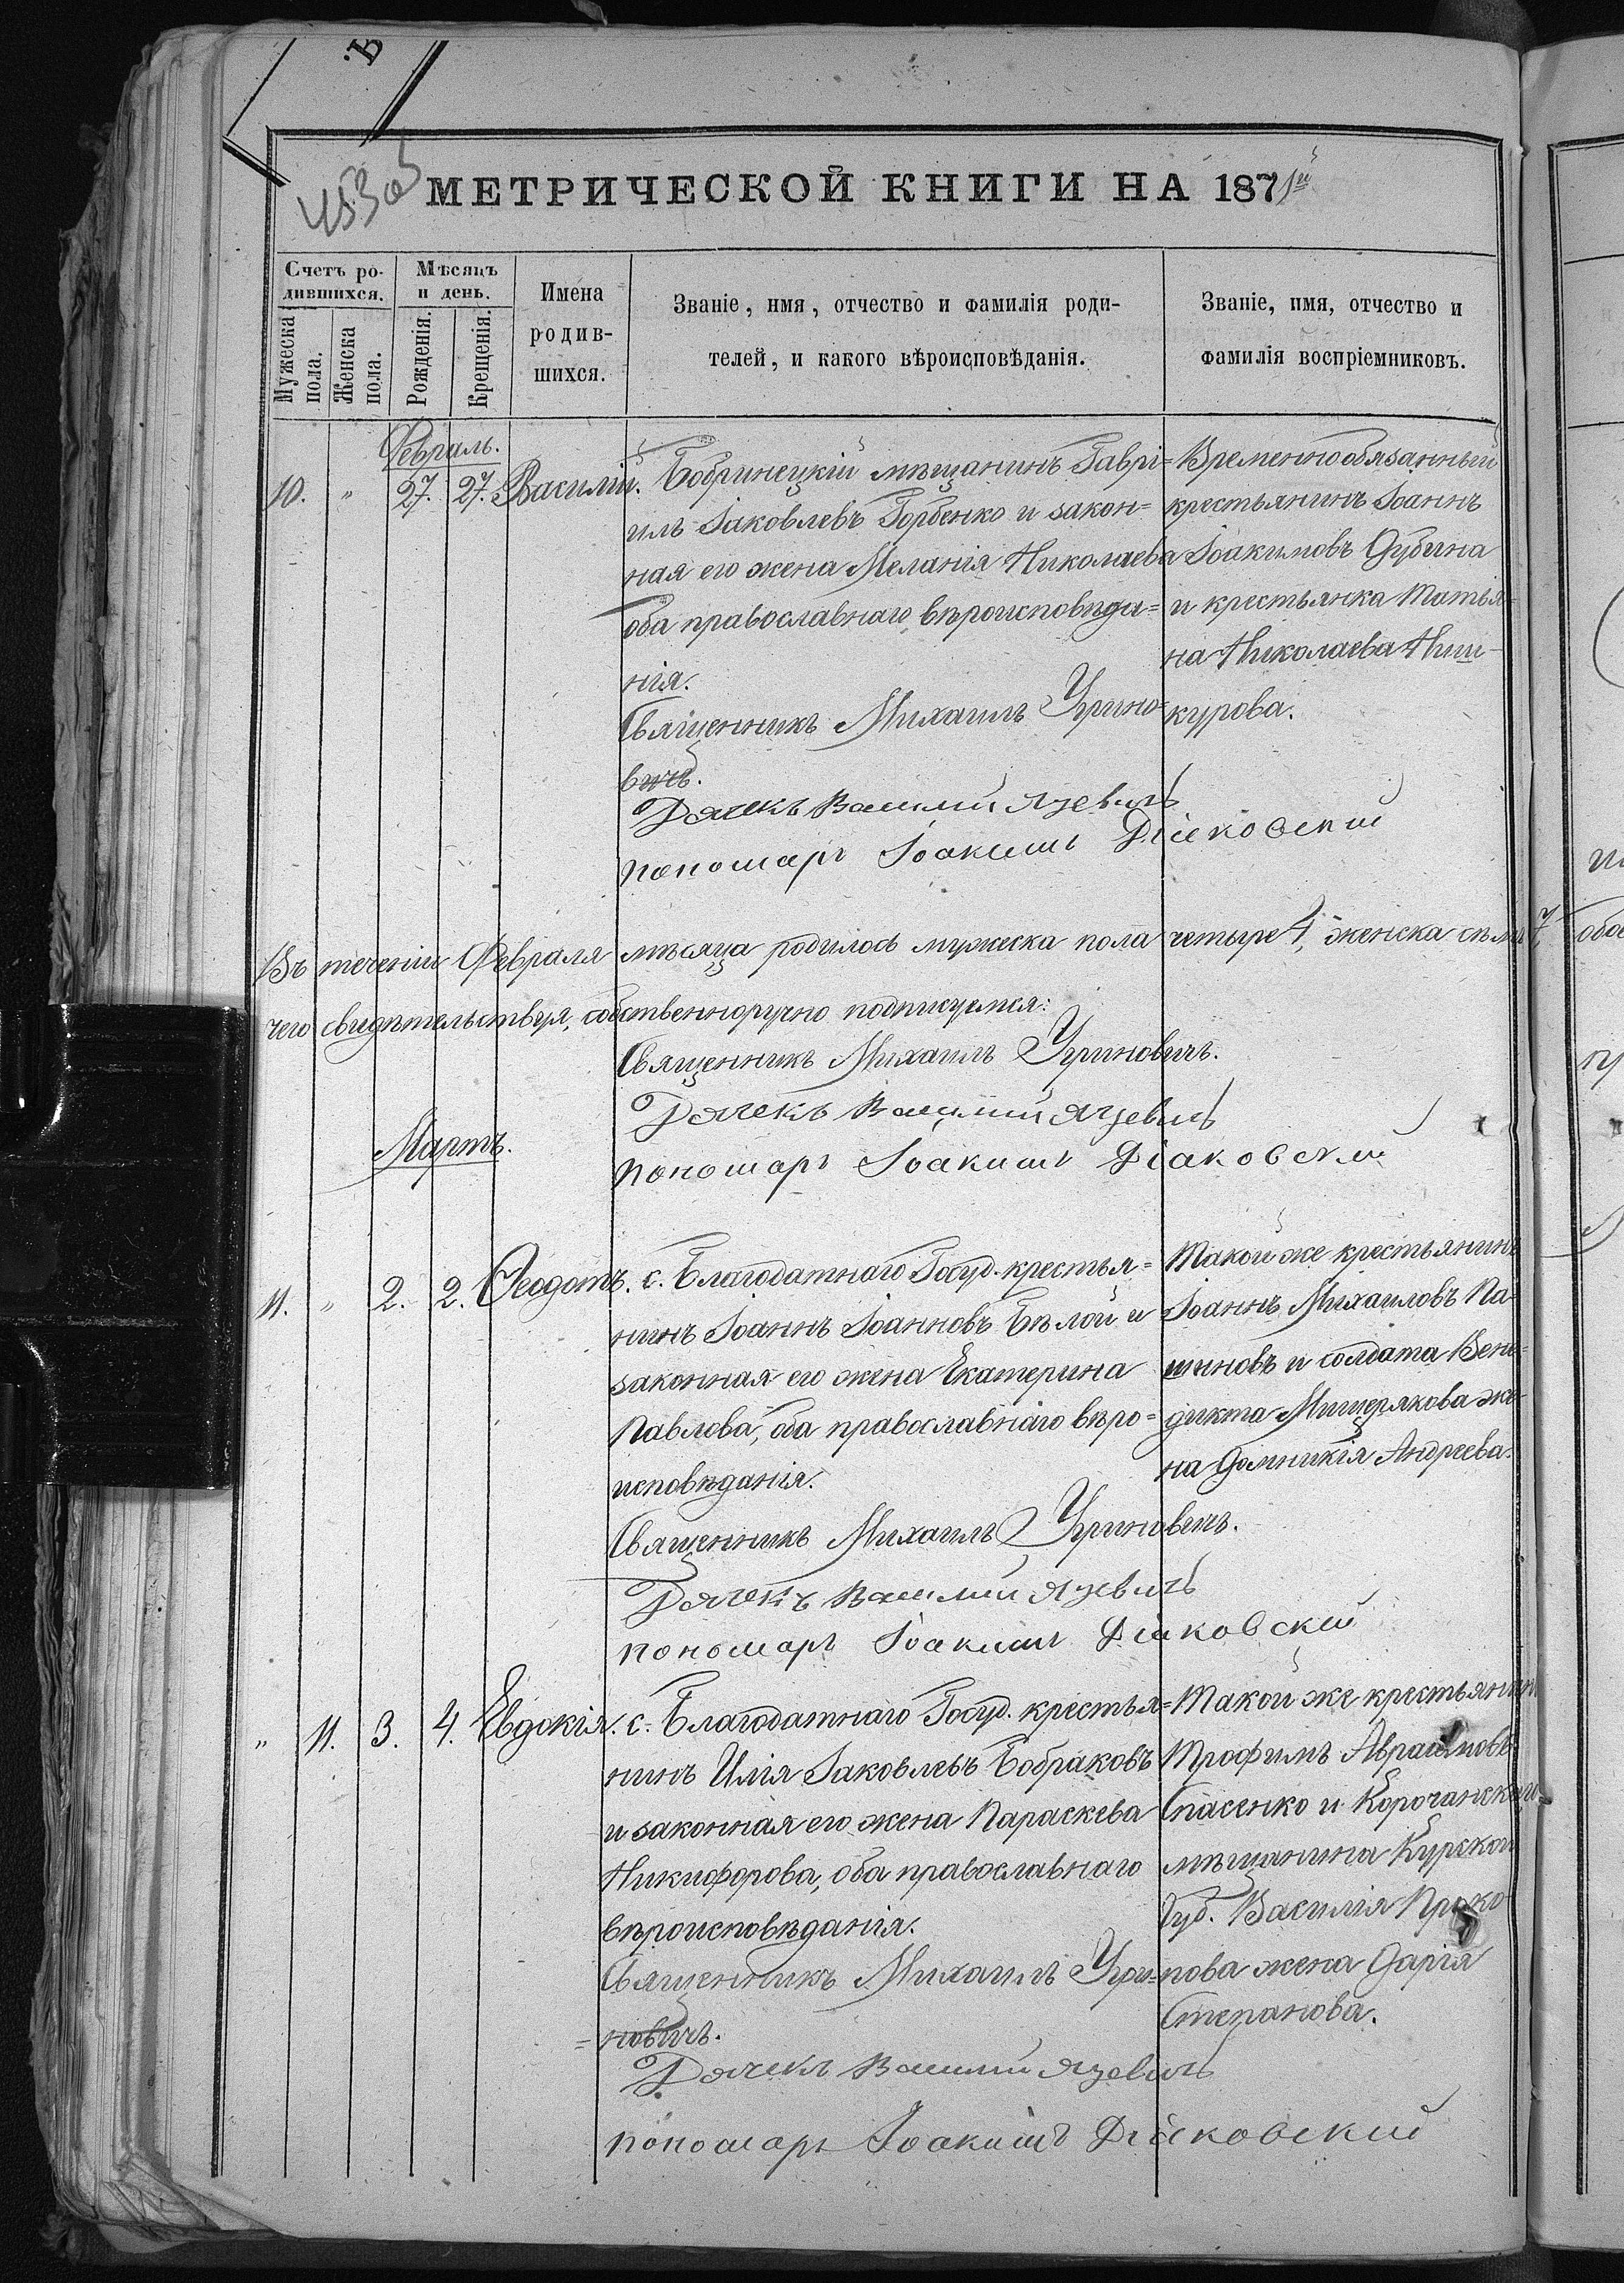 453об
МЕТРИЧЕСКОЙ КНИГИ НА 1871й
Счетъ ро-
дившихся.
Мужеска пола.
Женска пола.
Мѣсяцъ
и день.
Рожденія.
Крещенія.
Имена
родив-
шихся.
Званіе, имя, отчество и фамилія роди-
телей, и какого вѣроисповѣданія.
Званіе, имя, отчество и
фамилія воспріемниковъ.
Февраль.
10. " 27. 27. Василій.
Бобринецкій мѣщанинъ Гаврі=
илъ Іаковлевъ Горбенко и закон=
ная его жена Меланія Николаева
оба православнаго вѣроисповѣда=
нія.
Священникъ Михаилъ Угрино-
вичъ.
Дячекъ Василий Язевичъ
пономаръ Іоакимъ Діаковский
Временнообязанный
крестьянинъ Іоаннъ
Іоакимовъ Дубина
и крестьянка Татья=
на Николаева
курова.
Въ теченіи Февраля мѣсяца родилось мужеска пола четыре 4, женска семь 7,
чего свидѣтельствуя, собственноручно подписуемся:
Священникъ Михаилъ Угриновичъ.
Дячекъ Василий Язевичъ
пономаръ Іоакимъ Діаковский
Мартъ.
11. " 2. 2. Ѳеодотъ.
с. Благодатнаго Госуд. крестья=
нинъ Іоаннъ Іоанновъ Бѣлой и
законная его жена Екатерина
Павлова, оба православнаго вѣро=
исповѣданія.
Священникъ Михаилъ Угриновичъ.
Дячекъ Василий Язевичъ
пономаръ Іоакимъ Діаковский
Такой же крестьянинъ
Іоаннъ Михаиловъ Па-
шиновъ и солдата Вене=
дикта Мищерякова же-
на Домникія Андреева.
" 11. 3. 4. Евдокія.
с. Благодатнаго Госуд. крестья=
нинъ Илія Іаковлевъ Бобраковъ
и законная его жена Параскева
Никифорова, оба православнаго
вѣроисповѣданія.
Священникъ Михаилъ Угри=
=новичъ.
Дячекъ Василий Язевичъ
пономаръ Іоакимъ Діаковский
Такой же крестьянинъ
Трофимъ Аврамовъ
Спасенко и Корочанскаго
мѣщанина Курской
Губ. Василія Проко-
пова жена Дарія
Степанова.